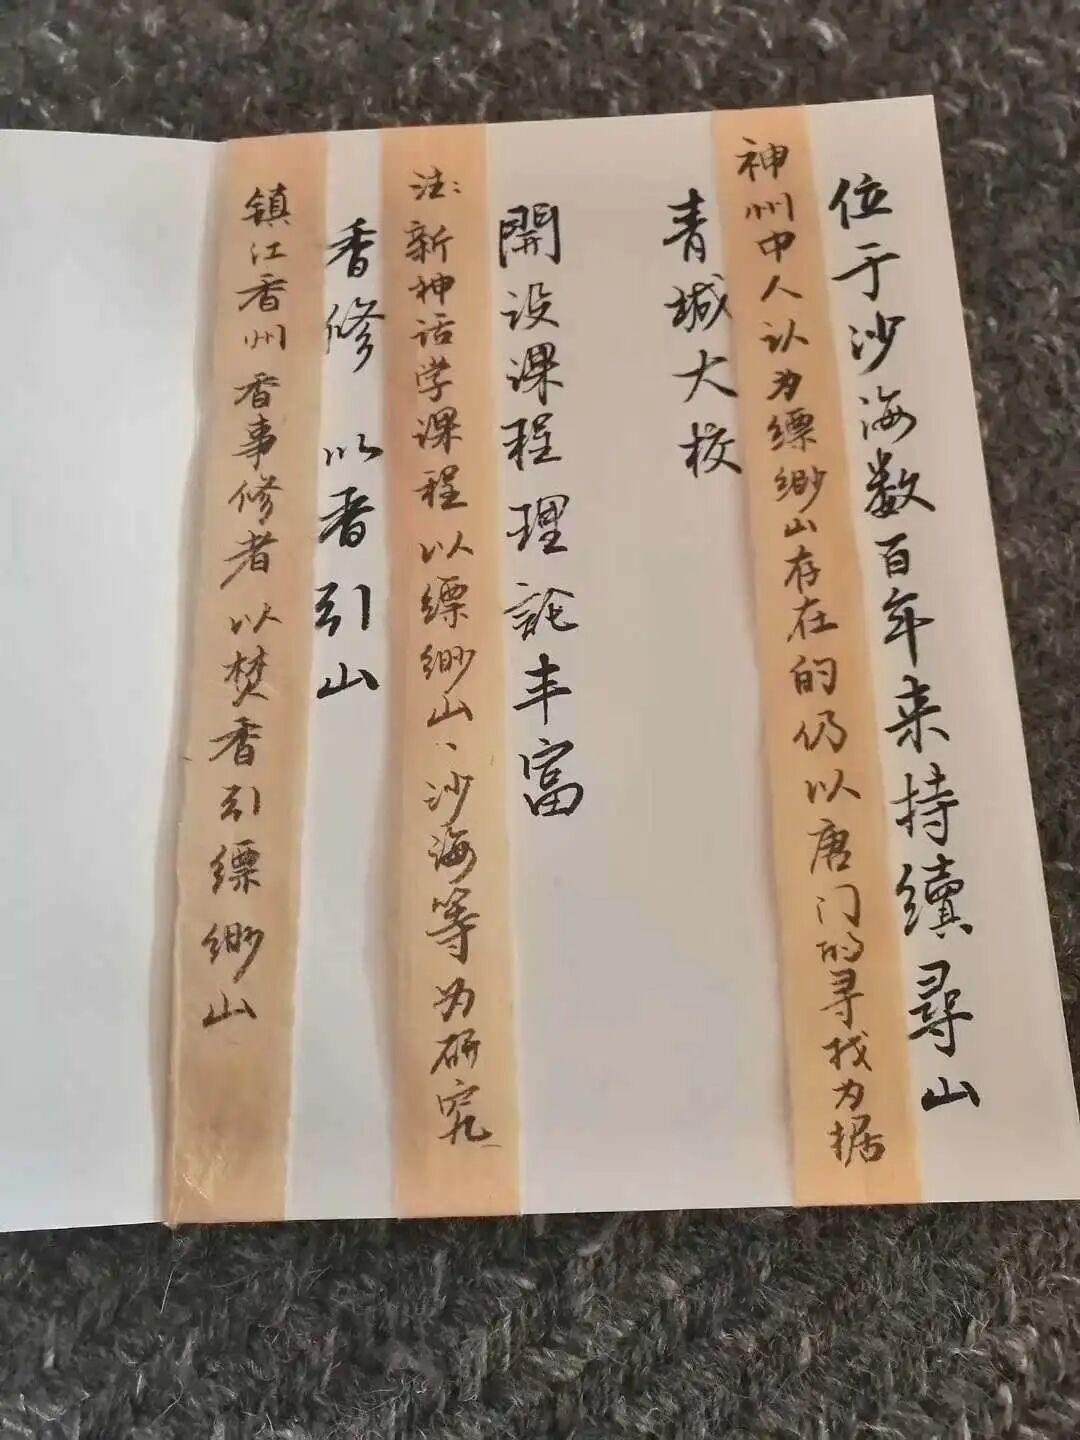 位于沙海数百年来持續尋山
神州中人认为缥缈山存在的仍以唐门的寻找为据
青城大校
開设课程理論丰富
注：新神话学课程以缥缈山、沙海等为研究
香修 以香引山
镇江香州香事修者以焚香引缥缈山